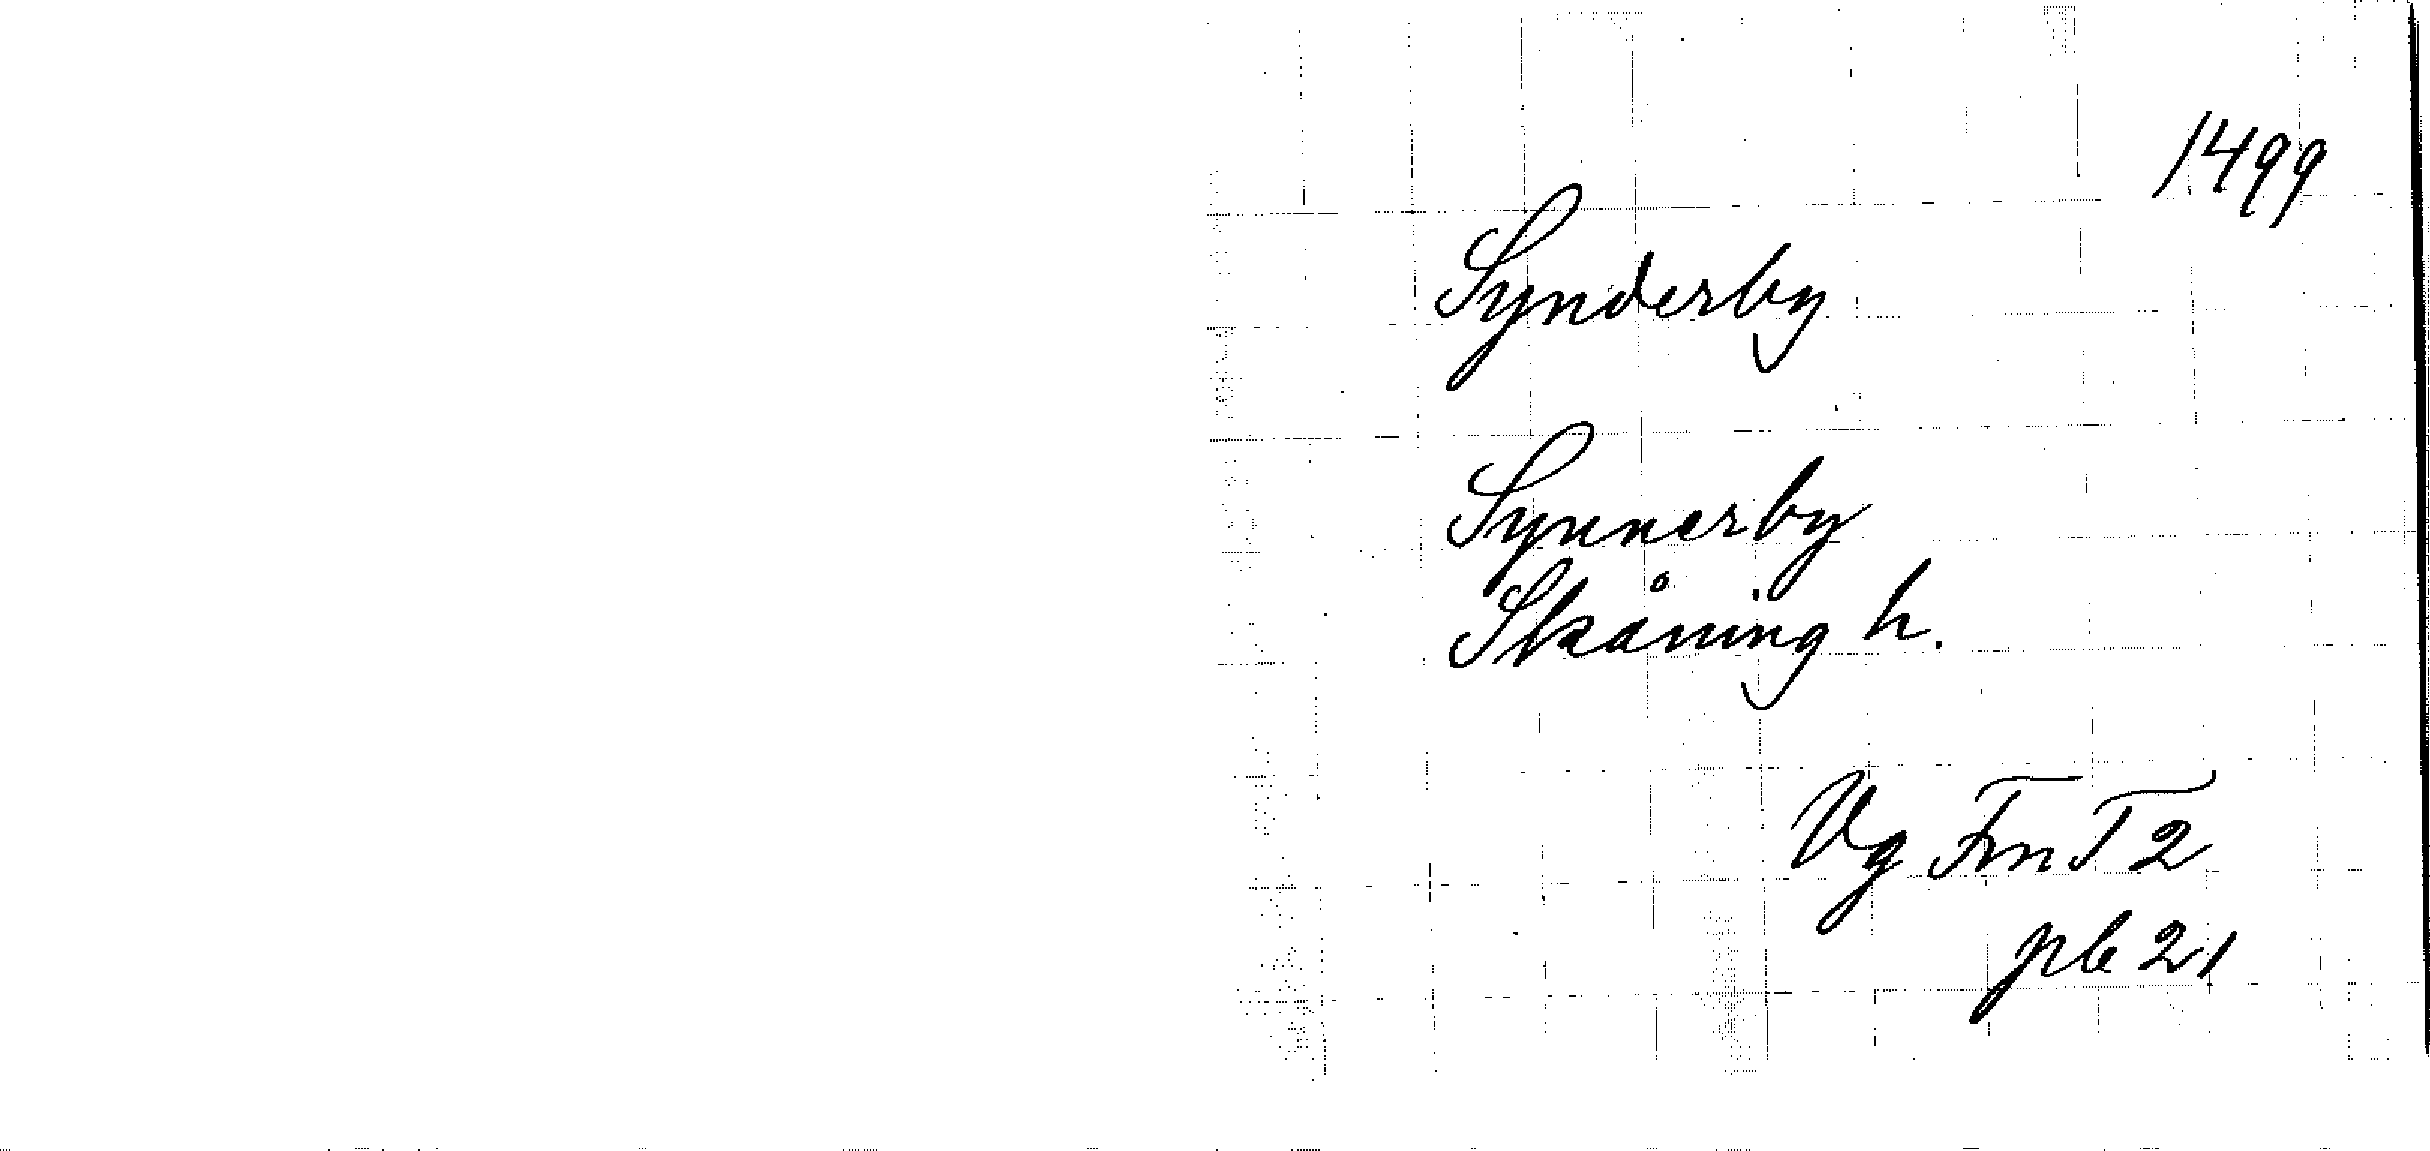 1499
Synderby
Synnerby
Skåning h.
Vg FmT 2
pb 21